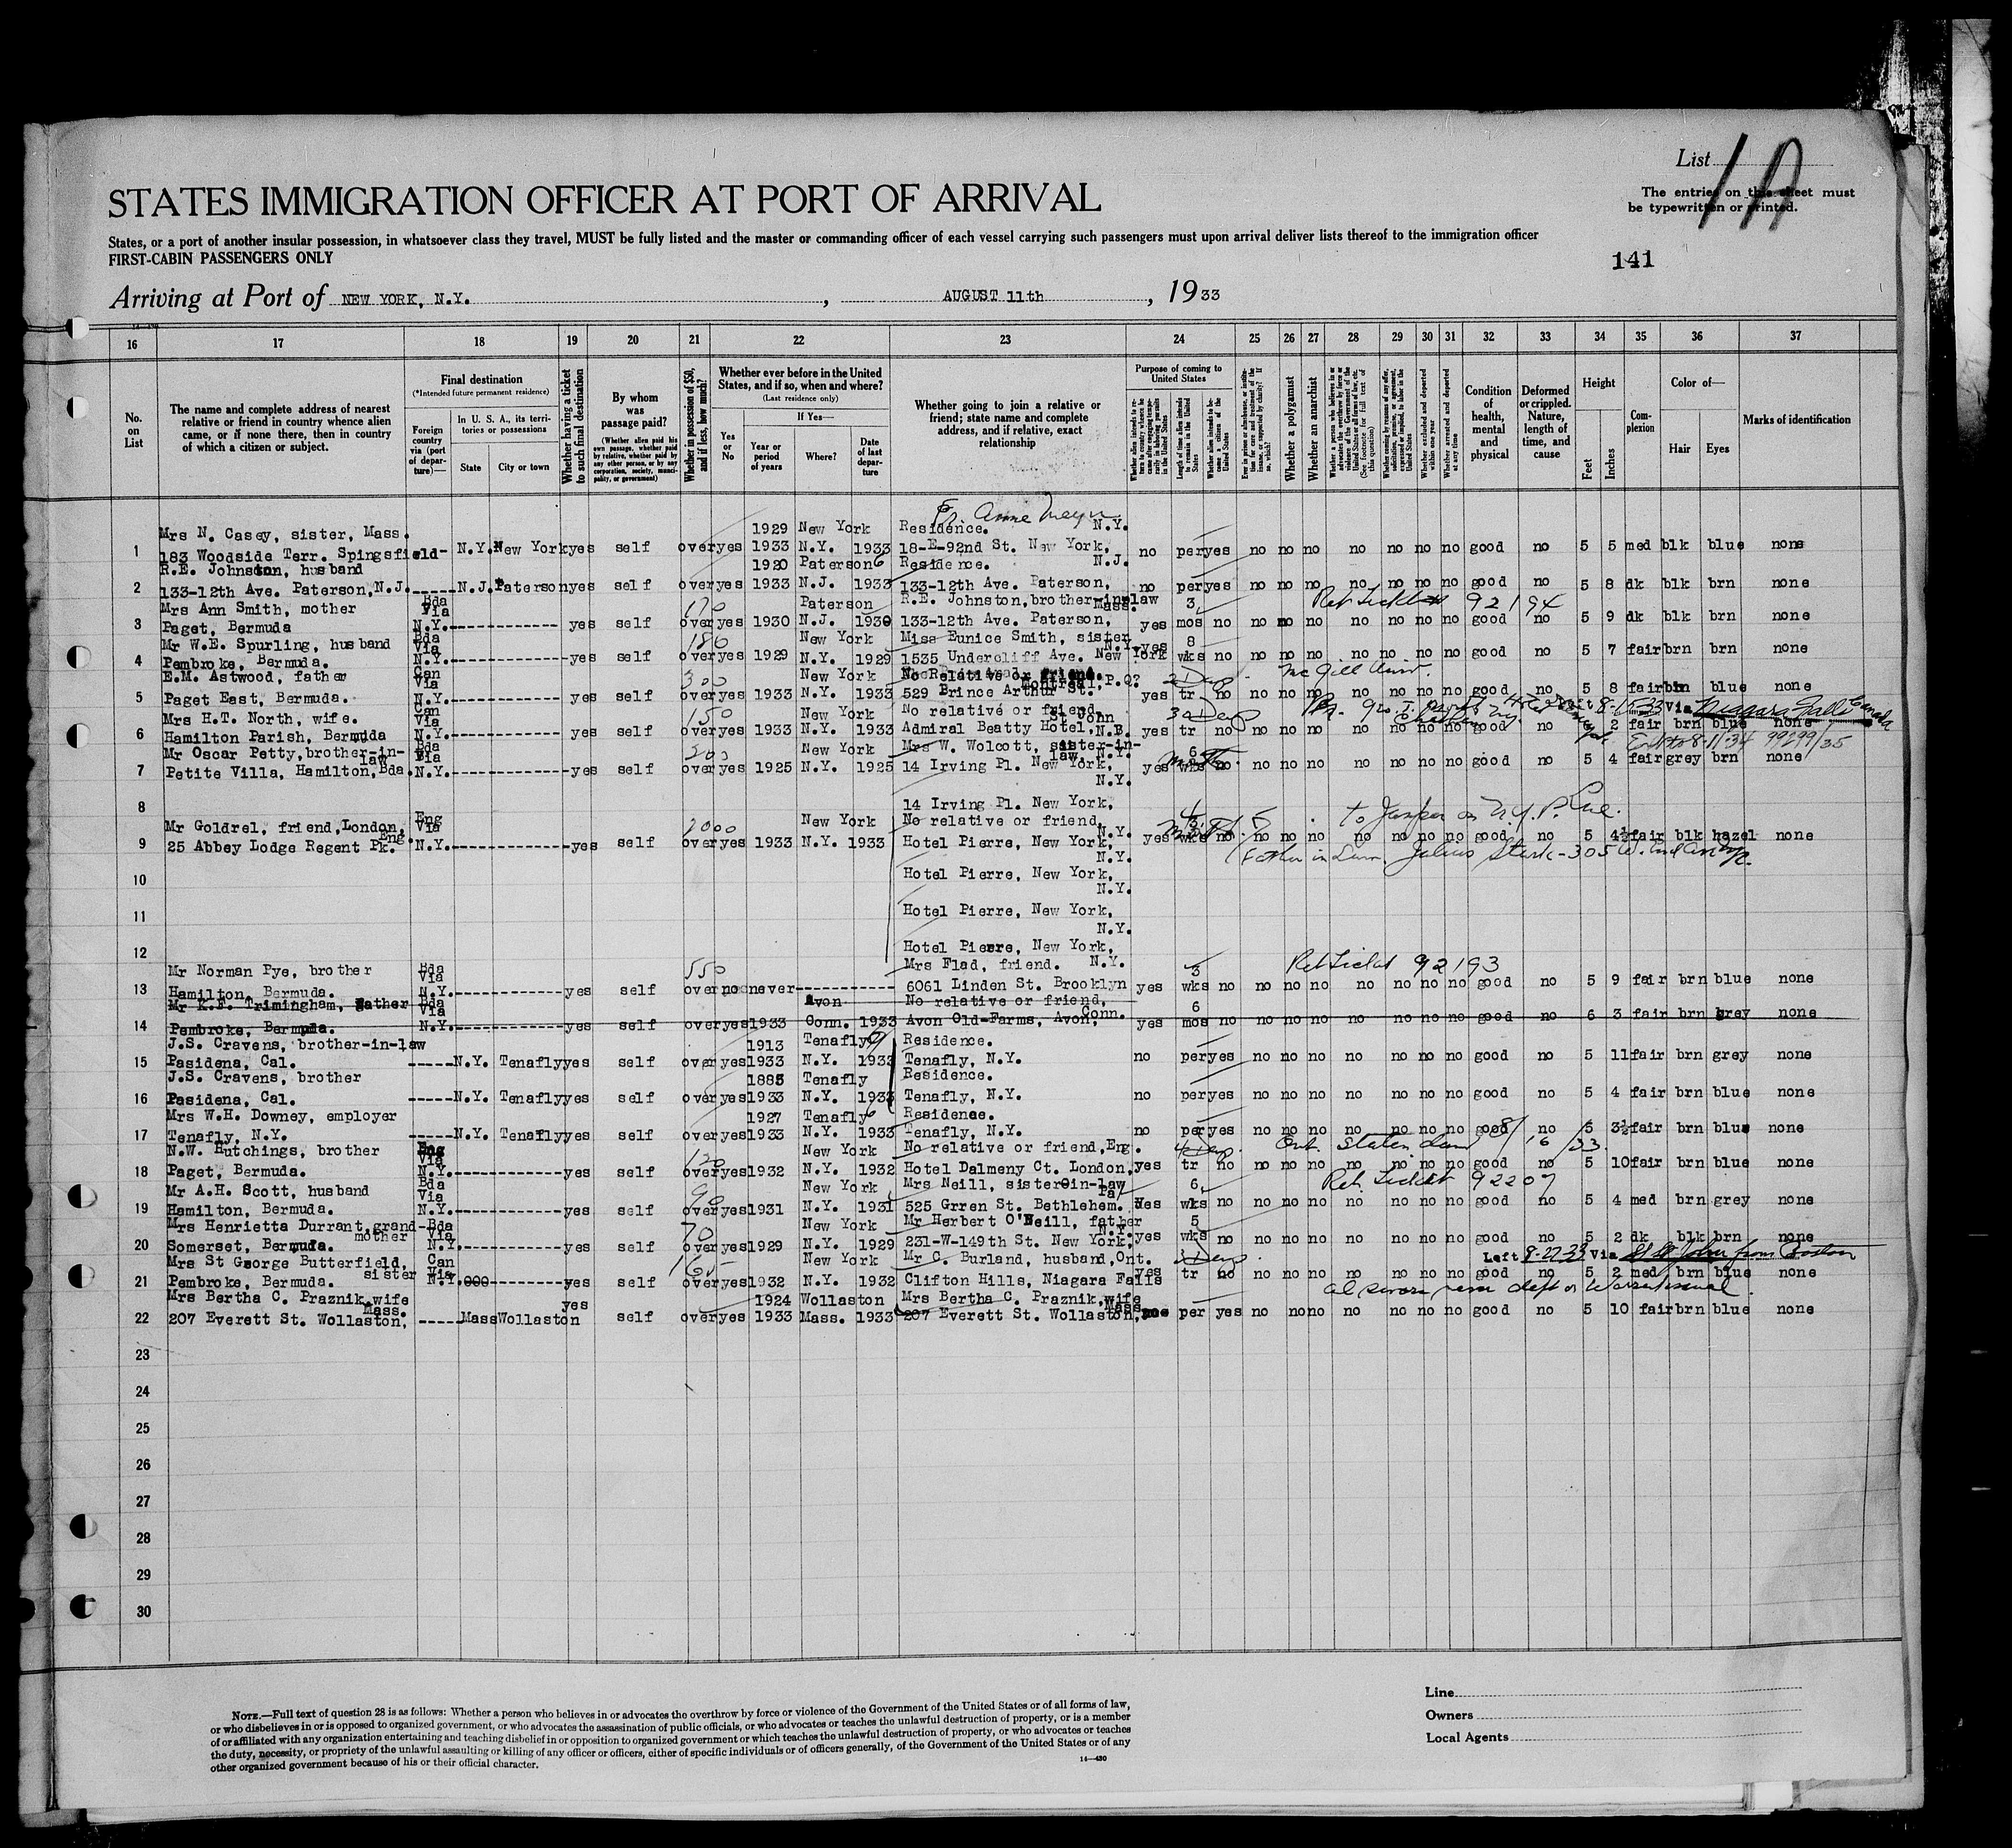 List 1A
The entries on this sheet must
be typewritten or printed.
STATES IMMIGRATION OFFICER AT PORT OF ARRIVAL
States, or a port of another insular possession, in whatsoever class they travel, MUST be fully listed and the master or commanding officer of each vessel carrying such passengers must upon arrival deliver lists thereof to the immigration officer
FIRST-CABIN PASSENGERS ONLY
141
Arriving at Port of NEW YORK, N.Y. , AUGUST 11th , 1933
16 17 18 19 20 21 22 23 24 25 26 27 28 29 30 31 32 33 34 35 36 37
No. on List
The name and complete address of nearest relative or friend in country whence alien came, or if none there, then in country of which a citizen or subject.
Final destination
(*Intended future permanent residence)
Foreign country via (port of departure)—
In U. S. A., its territories or possessions
State
City or town
Whether having a ticket to such final destination
By whom was passage paid?
(Whether alien paid his own passage, whether paid by relative, whether paid by any other person, or by any corporation, society, municipality, or government)
Whether in possession of $50, and if less, how much?
Whether ever before in the United States, and if so, when and where?
(Last residence only)
Yes or No
If Yes—
Year or period of years
Where?
Date of last departure
Whether going to join a relative or friend; state name and complete address, and if relative, exact relationship
Purpose of coming to United States
Length of time alien intends to remain in the United States
Whether alien intends to become a citizen of the United States
Whether a polygamist
Whether an anarchist
Whether excluded and deported within one year
Whether arrested and deported at any time
Condition of health, mental and physical
Deformed or crippled. Nature, length of time, and cause
Height
Feet
Inches
Complexion
Color of—
Hair
Eyes
Marks of identification
Mrs N. Casey, sister, Mass. 1929 New York Residence. N.Y.
1 183 Woodside Terr. Spingsfield- N.Y. New York yes self over yes 1933 N.Y. 1933 18-E-92nd St. New York, no per yes no no no no no no no good no 5 5 med blk blue none
R.E. Johnston, husband 1920 Paterson Residence. N.J.
2 133-12th Ave. Paterson, N.J. ----- N.J. Paterson yes self over yes 1933 N.J. 1933 133-12th Ave. Paterson, no per yes no no no no no no no good no 5 8 dk blk brn none
Mrs Ann Smith, mother Bda Via 170 Paterson R.E. Johnston, brother-in-law Mass. 3 Ret Ticket 92194
3 Paget, Bermuda N.Y. ------------ yes self over yes 1930 N.J. 1930 133-12th Ave. Paterson, yes mos no no no no no no no no good no 5 9 dk blk brn none
Mr W.E. Spurling, husband Bda Via 180 New York Miss Eunice Smith, sister N.Y. 8
4 Pembroke, Bermuda. N.Y. ------------ yes self over yes 1929 N.Y. 1929 1535 Undercliff Ave. New York yes wks no no no no no no no no good no 5 7 fair brn brn none
E.M. Astwood, father Can Via 300 New York No relative or friend. Montreal, P.Q? McGill Univ.
5 Paget East, Bermuda. N.Y. ------------ yes self over yes 1933 N.Y. 1933 529 Prince Arthur St. yes tr no no no no no no no no good no 5 8 fair brn blue none
Mrs H.T. North, wife. Can Via 150 New York No relative or friend, St John Left 8-15-33 Via Niagara Falls Canada
6 Hamilton Parish, Bermuda N.Y. ------------ yes self over yes 1933 N.Y. 1933 Admiral Beatty Hotel, N.B. yes tr no no no no no no no no good no 2 fair brn blue none
8-11-34 99299/35
Mr Oscar Petty, brother-in-law Bda Via 200 New York Mrs W. Wolcott, sister-in-law. N.Y. 6
7 Petite Villa, Hamilton, Bda. N.Y. ------------ yes self over yes 1925 N.Y. 1925 14 Irving Pl. New York, yes wks no no no no no no no no good no 5 4 fair grey brn none
N.Y.
8 14 Irving Pl. New York,
Mr Goldrel, friend, London, Eng. Eng Via 2000 New York No relative or friend, N.Y.
9 25 Abbey Lodge Regent Pk. N.Y. ------------ yes self over yes 1933 N.Y. 1933 Hotel Pierre, New York, yes wks no no no no no no no no good no 5 4½ fair blk hazel none
Father in Law. Julius Stark - 305 W. End Ave
N.Y.
10 Hotel Pierre, New York,
N.Y.
11 Hotel Pierre, New York,
N.Y.
12 Hotel Pierre, New York,
Mr Norman Pye, brother Bda Via 550 Mrs Flad, friend. N.Y. 3 Ret Ticket 92193
13 Hamilton, Bermuda. N.Y. ------------ yes self over no never ------------ 6061 Linden St. Brooklyn yes wks no no no no no no no no good no 5 9 fair brn blue none
Mr K.F. Trimingham, father Bda Via Avon No relative or friend, Conn. 6
14 Pembroke, Bermuda. N.Y. ------------ yes self over yes 1933 Conn. 1933 Avon Old-Farms, Avon, yes mos no no no no no no no no good no 6 3 fair brn grey none
J.S. Cravens, brother-in-law 1913 Tenafly Residence.
15 Pasidena, Cal. ----- N.Y. Tenafly yes self over yes 1933 N.Y. 1933 Tenafly, N.Y. no per yes no no no no no no no good no 5 11 fair brn grey none
J.S. Cravens, brother 1885 Tenafly Residence.
16 Pasidena, Cal. ----- N.Y. Tenafly yes self over yes 1933 N.Y. 1933 Tenafly, N.Y. no per yes no no no no no no no good no 5 4 fair brn blue none
Mrs W.H. Downey, employer 1927 Tenafly Residence.
17 Tenafly, N.Y. ----- N.Y. Tenafly yes self over yes 1933 N.Y. 1933 Tenafly, N.Y. no per yes no no no no no no no good no 5 3½ fair brn blue none
N.W. Hutchings, brother Eng Via 120 New York No relative or friend, Eng. 8/16/33
18 Paget, Bermuda. N.Y. ------------ yes self over yes 1932 N.Y. 1932 Hotel Dalmeny Ct. London, yes tr no no no no no no no no good no 5 10 fair brn blue none
Mr A.H. Scott, husband Bda Via 90 New York Mrs Neill, sister-in-law Pa. 6 Ret. Ticket 92207
19 Hamilton, Bermuda. N.Y. ------------ yes self over yes 1931 N.Y. 1931 525 Grren St. Bethlehem. yes wks no no no no no no no no good no 5 4 med brn grey none
Mrs Henrietta Durrant, grand-mother Bda Via 70 New York Mr Herbert O'Neill, father N.Y. 5
20 Somerset, Bermuda. N.Y. ------------ yes self over yes 1929 N.Y. 1929 231-W-149th St. New York, yes wks no no no no no no no no good no 5 2 dk blk brn none
Mrs St George Butterfield, sister Can Via 165 New York Mr C. Burland, husband, Ont. Left 8-27-33 Via St John from Boston
21 Pembroke, Bermuda. N.Y. 000 ------ yes self over yes 1932 N.Y. 1932 Clifton Hills, Niagara Falls yes tr no no no no no no no no good no 5 2 med brn blue none
Mrs Bertha C. Praznik, wife Mass. yes 1924 Wollaston Mrs Bertha C. Praznik, wife Mass.
22 207 Everett St. Wollaston, ----- Mass Wollaston self over yes 1933 Mass. 1933 207 Everett St. Wollaston, per yes no no no no no no no good no 5 10 fair brn blue none
23
24
25
26
27
28
29
30
NOTE.—Full text of question 28 is as follows: Whether a person who believes in or advocates the overthrow by force or violence of the Government of the United States or of all forms of law,
or who disbelieves in or is opposed to organized government, or who advocates the assassination of public officials, or who advocates or teaches the unlawful destruction of property, or is a member
of or affiliated with any organization entertaining and teaching disbelief in or opposition to organized government or which teaches the unlawful destruction of property, or who advocates or teaches
the duty, necessity, or propriety of the unlawful assaulting or killing of any officer or officers, either of specific individuals or of officers generally, of the Government of the United States or of any
other organized government because of his or their official character.
14—430
Line
Owners
Local Agents